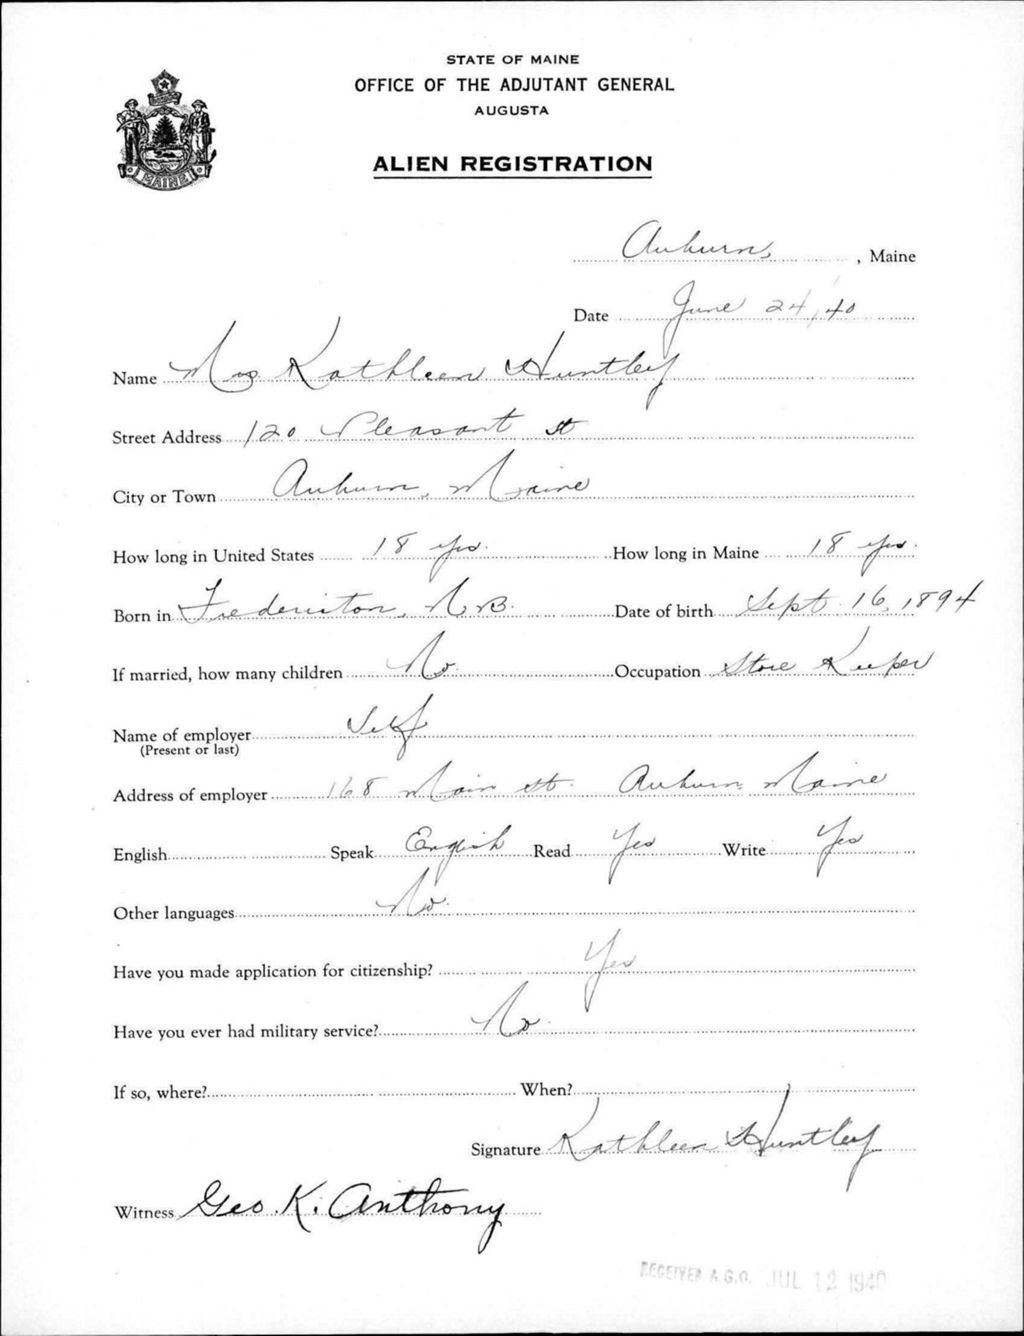 STATE OF MAINE
OFFICE OF THE ADJUTANT GENERAL
AUGUSTA
MAINE
ALIEN REGISTRATION
Auburn, , Maine
Date June 24, 40
Name Mrs Kathleen Huntley
Street Address 120 Pleasant St
City or Town Auburn, Maine
How long in United States 18 yrs. How long in Maine 18 yrs.
Born in Fredericton, N.B. Date of birth Sept. 16, 1894
If married, how many children No. Occupation Store Keeper
Name of employer Self
(Present or last)
Address of employer 168 Main St. Auburn, Maine
English Speak English Read Yes Write Yes
Other languages No.
Have you made application for citizenship? Yes
Have you ever had military service? No.
If so, where? When?
Signature Kathleen Huntley
Witness Geo. K. Anthony
RECEIVED A.G.O. JUL 12 1940